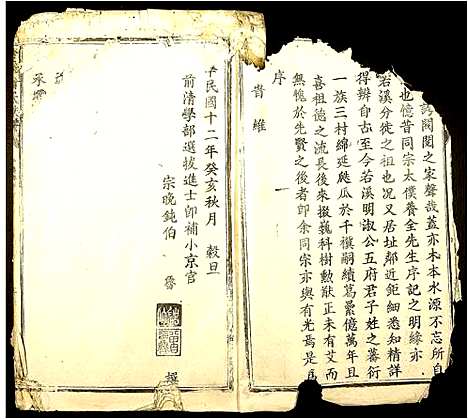 誇閥閱之家聲哉蓋亦木本水源不忘所自
也憶昔同宗太僕養全先生序記之明緣亦
若溪分徙之祖也况又居址鄰近鉅細悉知精詳
得辨自古至今若溪明淑公五府君子姓之蕃衍
一族三村綿延𤓰瓜於千禩嗣續葛藟億萬年且
喜祖德之流長後來掇巍科樹勲猷正未有艾而
無愧於先賢之後者卽余同宗亦與有光焉是爲
序
昔維
民國十二年癸亥秋月 穀旦
前清學部選拔進士卽補小京官
宗晚鈍伯 魯
撰